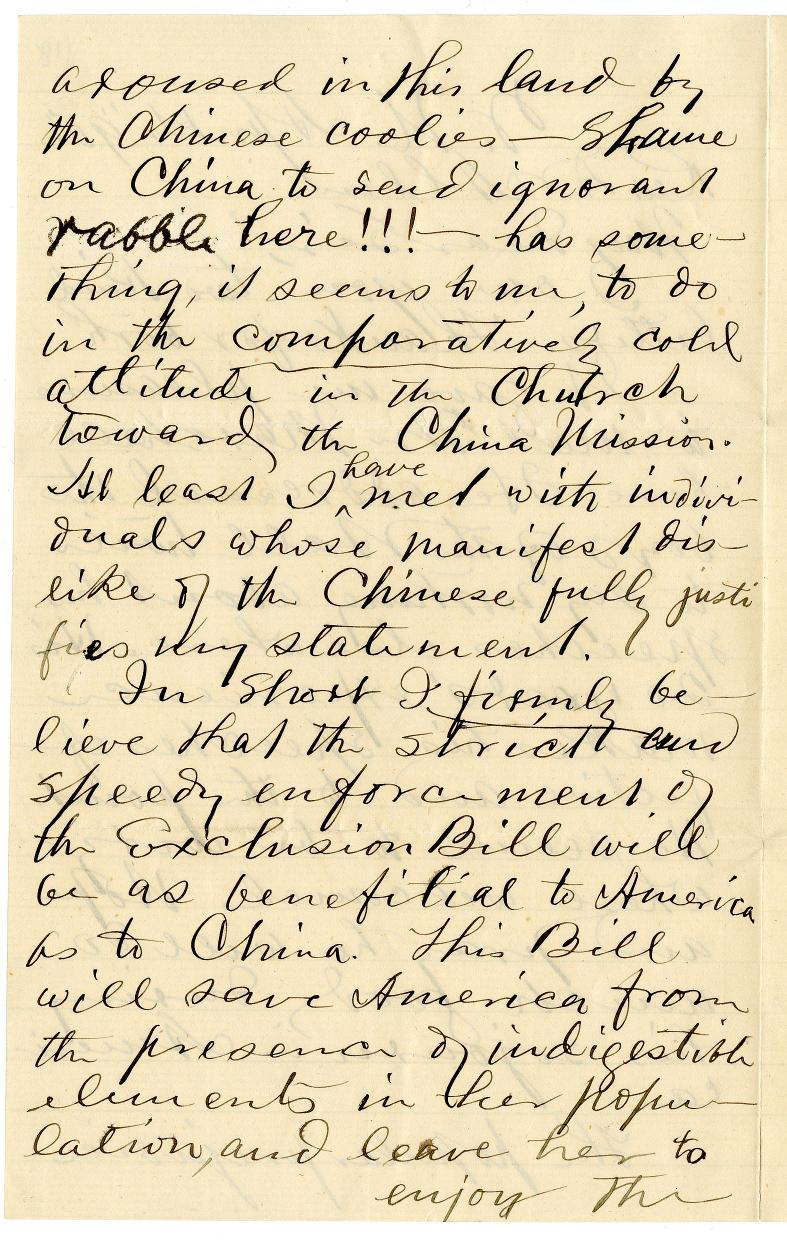 aroused in this land by
the Chinese coolies — Shame
on China to send ignorant
rabble here!!! — has some-
thing, it seems to me, to do
in the comparatively cold
attitude in the Church
toward the China Mission.
At least I have met with indivi-
duals whose manifest dis-
like of the Chinese fully justi
fies my statement.
In short I firmly be-
lieve that the strict and
speedy enforcement of
the Exclusion Bill will
be as benefitial to America
as to China. This Bill
will save America from
the presence of indigestible
elements in her popu-
lation, and leave her to
enjoy the